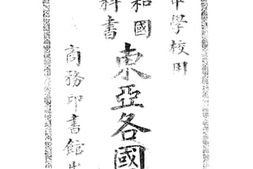 中學校用
和國
科書
東亞各國
商務印書館出